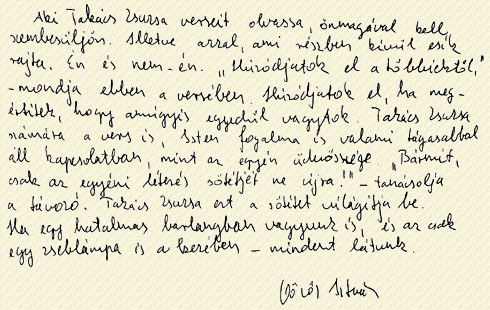 Aki Takács Zsuzsa verseit olvassa, önmagával kell
szembesüljön. Illetve azzal, ami részben kívül esik
rajta. Én és nem-én. „Húzódjatok el a többiektől,"
– mondja ebben a versében. Húzódjatok el, ha meg-
értitek, hogy amúgyis egyedül vagytok. Takács Zsuzsa
számára a vers is, Isten fogalma is valami tágasabbal
áll kapcsolatban, mint az egyén üdvössége. „Bármit,
csak az egyéni létezés sötétjét ne újra!" – tanácsolja
a távozó. Takács Zsuzsa ezt a sötétet világítja be.
Ha egy hatalmas barlangban vagyunk is, és az csak
egy zseblámpa is a kezében – mindent látunk.
Vörös István